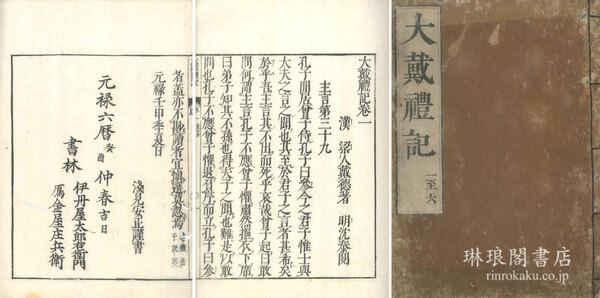 大戴禮記
一至六
大戴禮記卷一
漢 梁人戴德著 明沈泰閱
主言第三十九
孔子閒居曾子侍孔子曰參今之君子惟士與
大夫之言之間也其至於君子之言者甚希矣
於乎吾主言其不出而死乎哀哉曾子起曰敢
問何謂主言孔子不應曾子懼肅然摳衣下席
曰弟子知其不孫也得夫子之間也難是以敢
問也孔子不應曾子懼退負序而立孔子曰參
者蓋亦不尠讀者宜
元祿壬申季夏日
淺見安正謹書
元祿六曆癸酉仲春吉日
書林
伊丹屋太郎右衛門
鴈金屋庄兵衛
琳琅閣書店
rinrokaku.co.jp